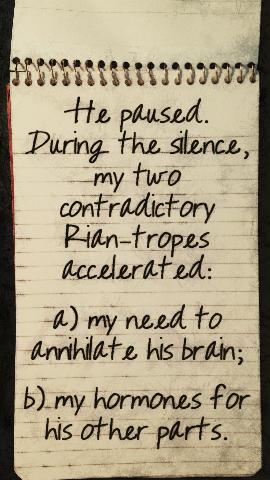 He paused.
During the silence,
my two
contradictory
Rian-tropes
accelerated:
a) my need to
annihilate his brain;
b) my hormones for
his other parts.